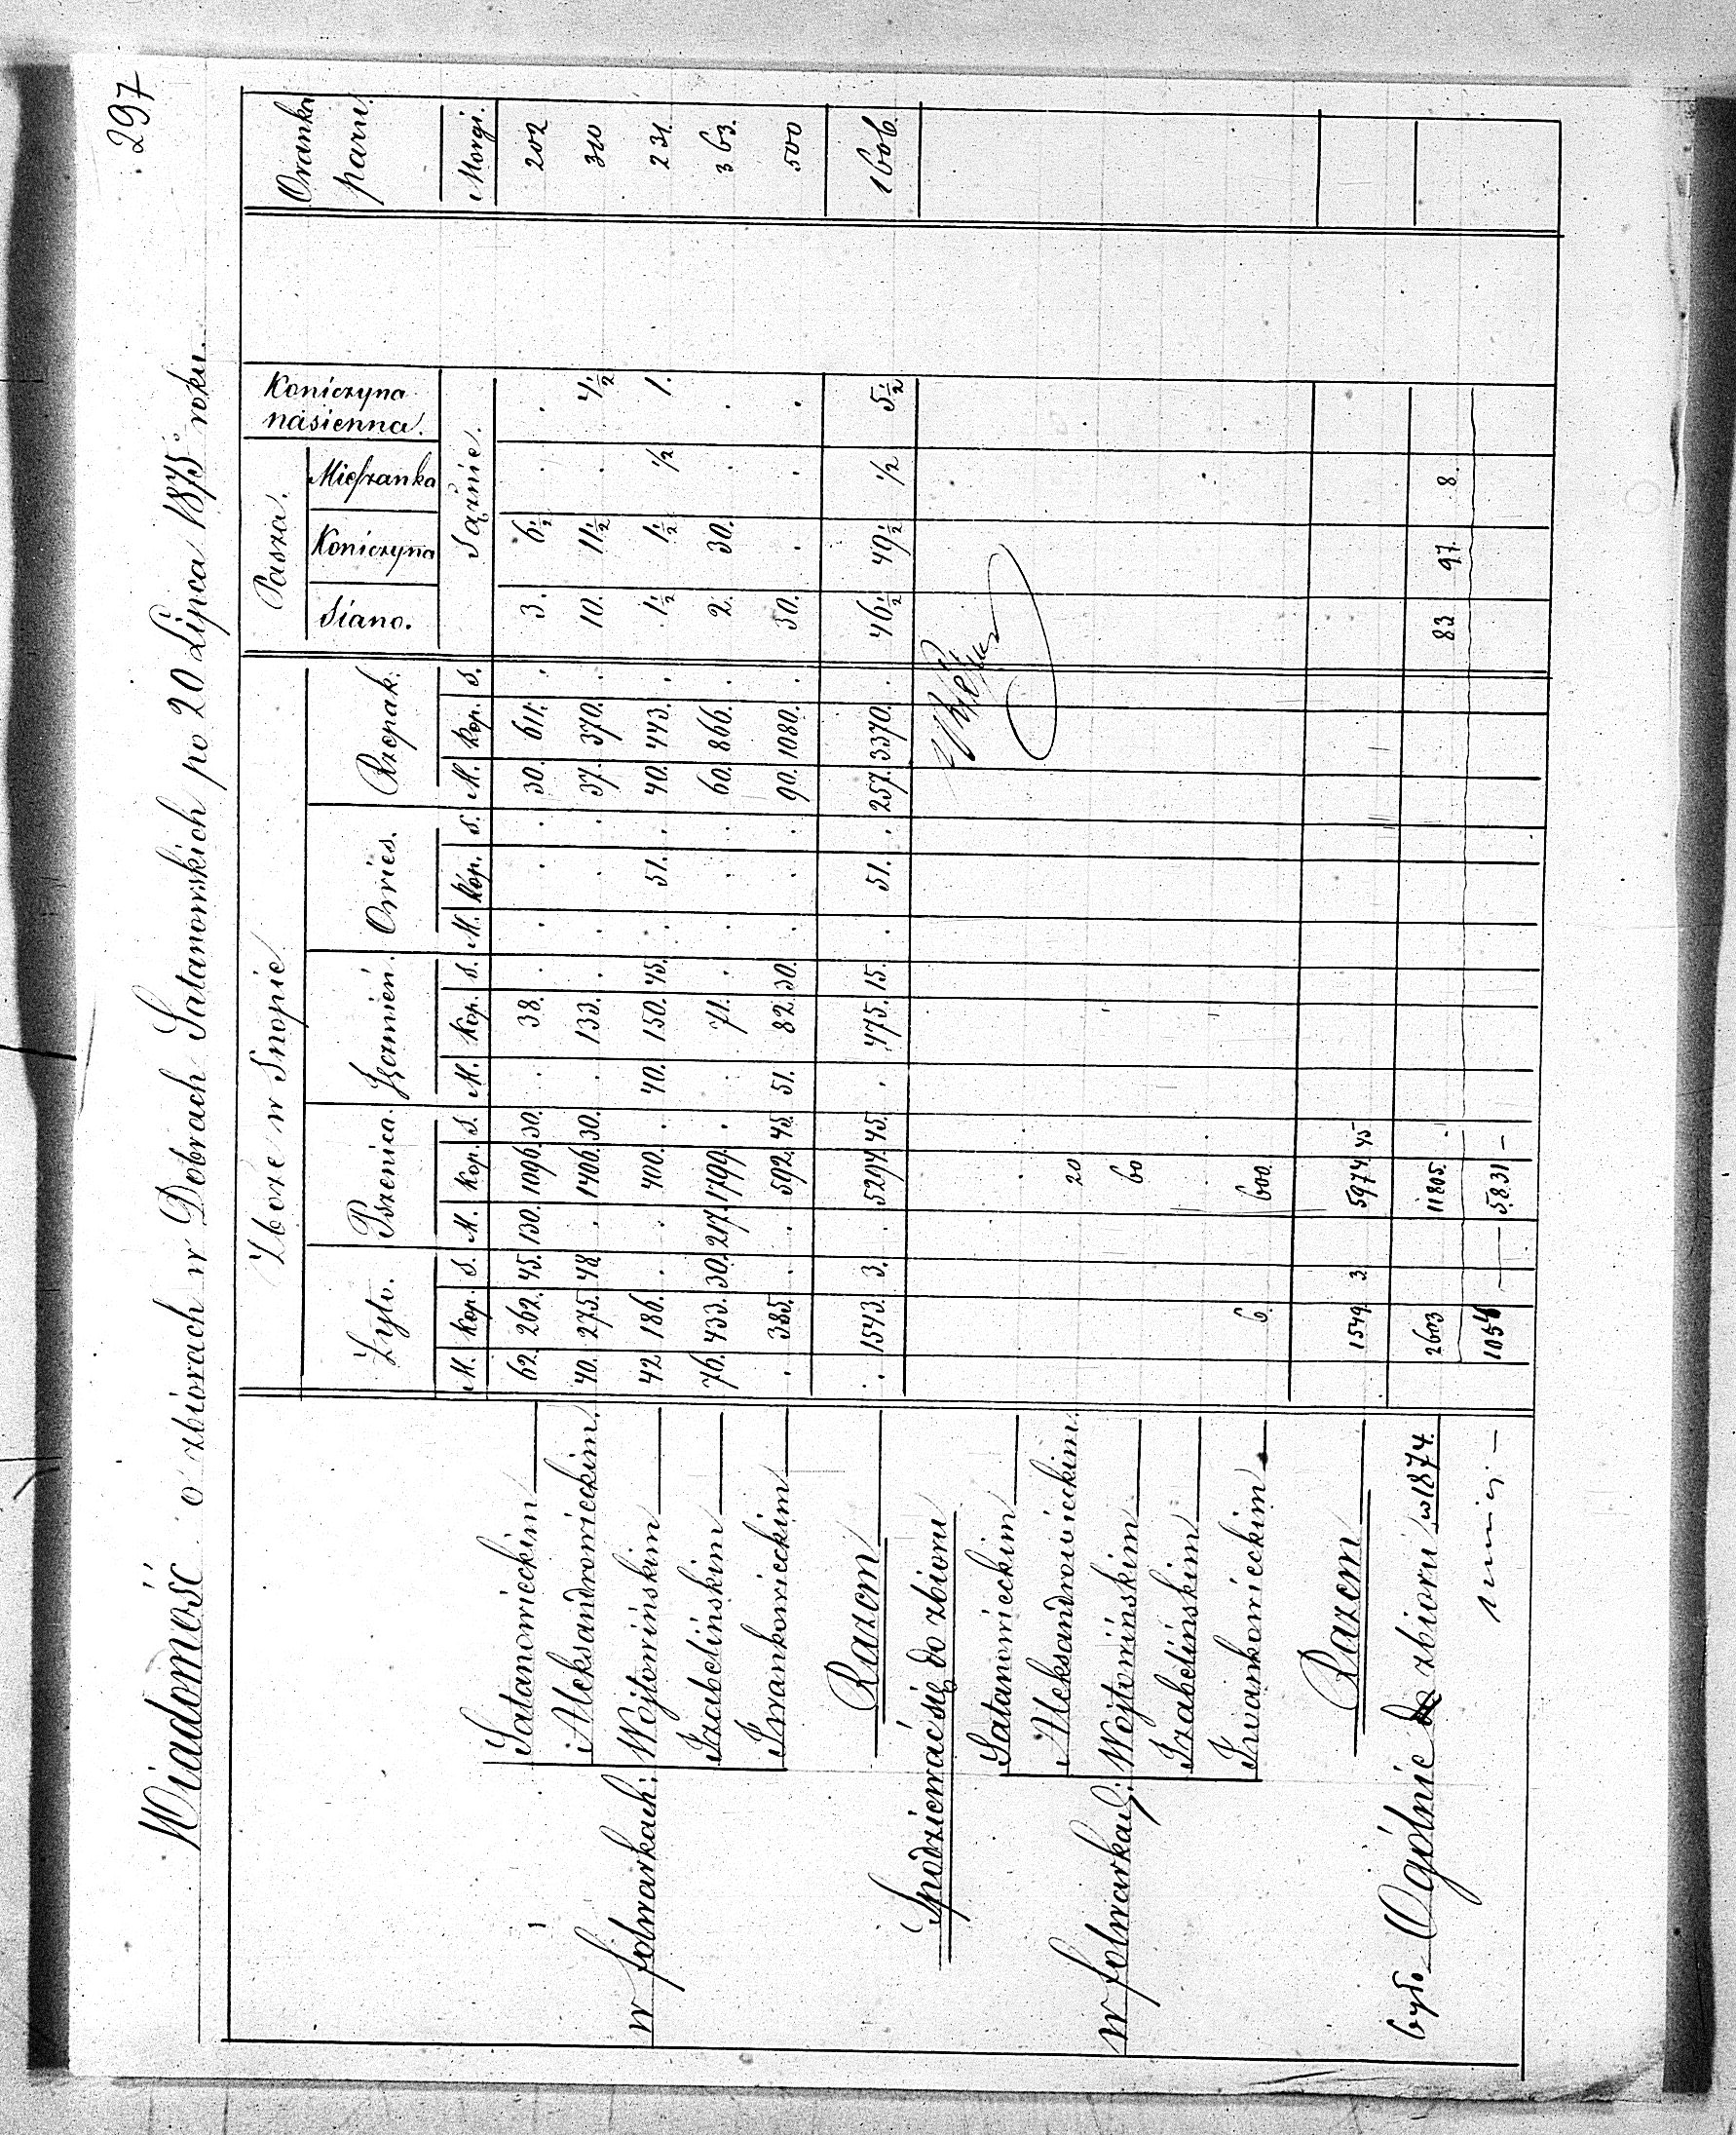 297
Wiadomość o zbiorach w Dobrach Satanowskich po 20 Lipca 1875 roku.
Zboże w Snopie Pasza. Koniczyna nasienna. Oranka paru.
Żyto. Pszenica. Jęczmień. Owies. Rzepak. Siano. Koniczyna Mieszanka
M. Kop. S. M. Kop. S. M. Kop. S. M. Kop. S. M. Kop. S. Sążnie. Morgi.
w folwarkach:
Satanowieckim 62. 262. 45. 130. 1096. 30. . 38. . . . . 30. 611. . 3. 6½ . . 202
Aleksandrowieckim. 40. 275. 48. . 1406. 30. . 133. . . . . 37. 370. . 10. 11½ . 4½ 310
Wojtowińskim 42. 186. . . 400. . 40. 150. 45. . 51. . 40. 443. . 1½ 1½ ½ 1. 231.
Izabelińskim 76. 433. 30. 217. 1799. . . 71. . . . . 60. 866. . 2. 30. . . 363.
Iwankowieckim . 385. . . 592. 45. 51. 82. 30. . . . 90. 1080. . 30. . . . 500
Razem . 1543. 3. . 5294. 45. . 475. 15. . 51. . 257. 3370. . 46½ 49½ ½ 5½ 1606.
Spodziewać się do zbioru
w folwarkach:
Satanowieckim
Aleksandrowieckim. 20
Wojtowińskim 60
Izabelińskim
Iwankowieckim 6. 600.
Razem 1549. 3 5974. 45
było Ogólnie zbioru w 1874. 2603 11805. . 83 97. 8.
mniej — 1054 — 5831 —